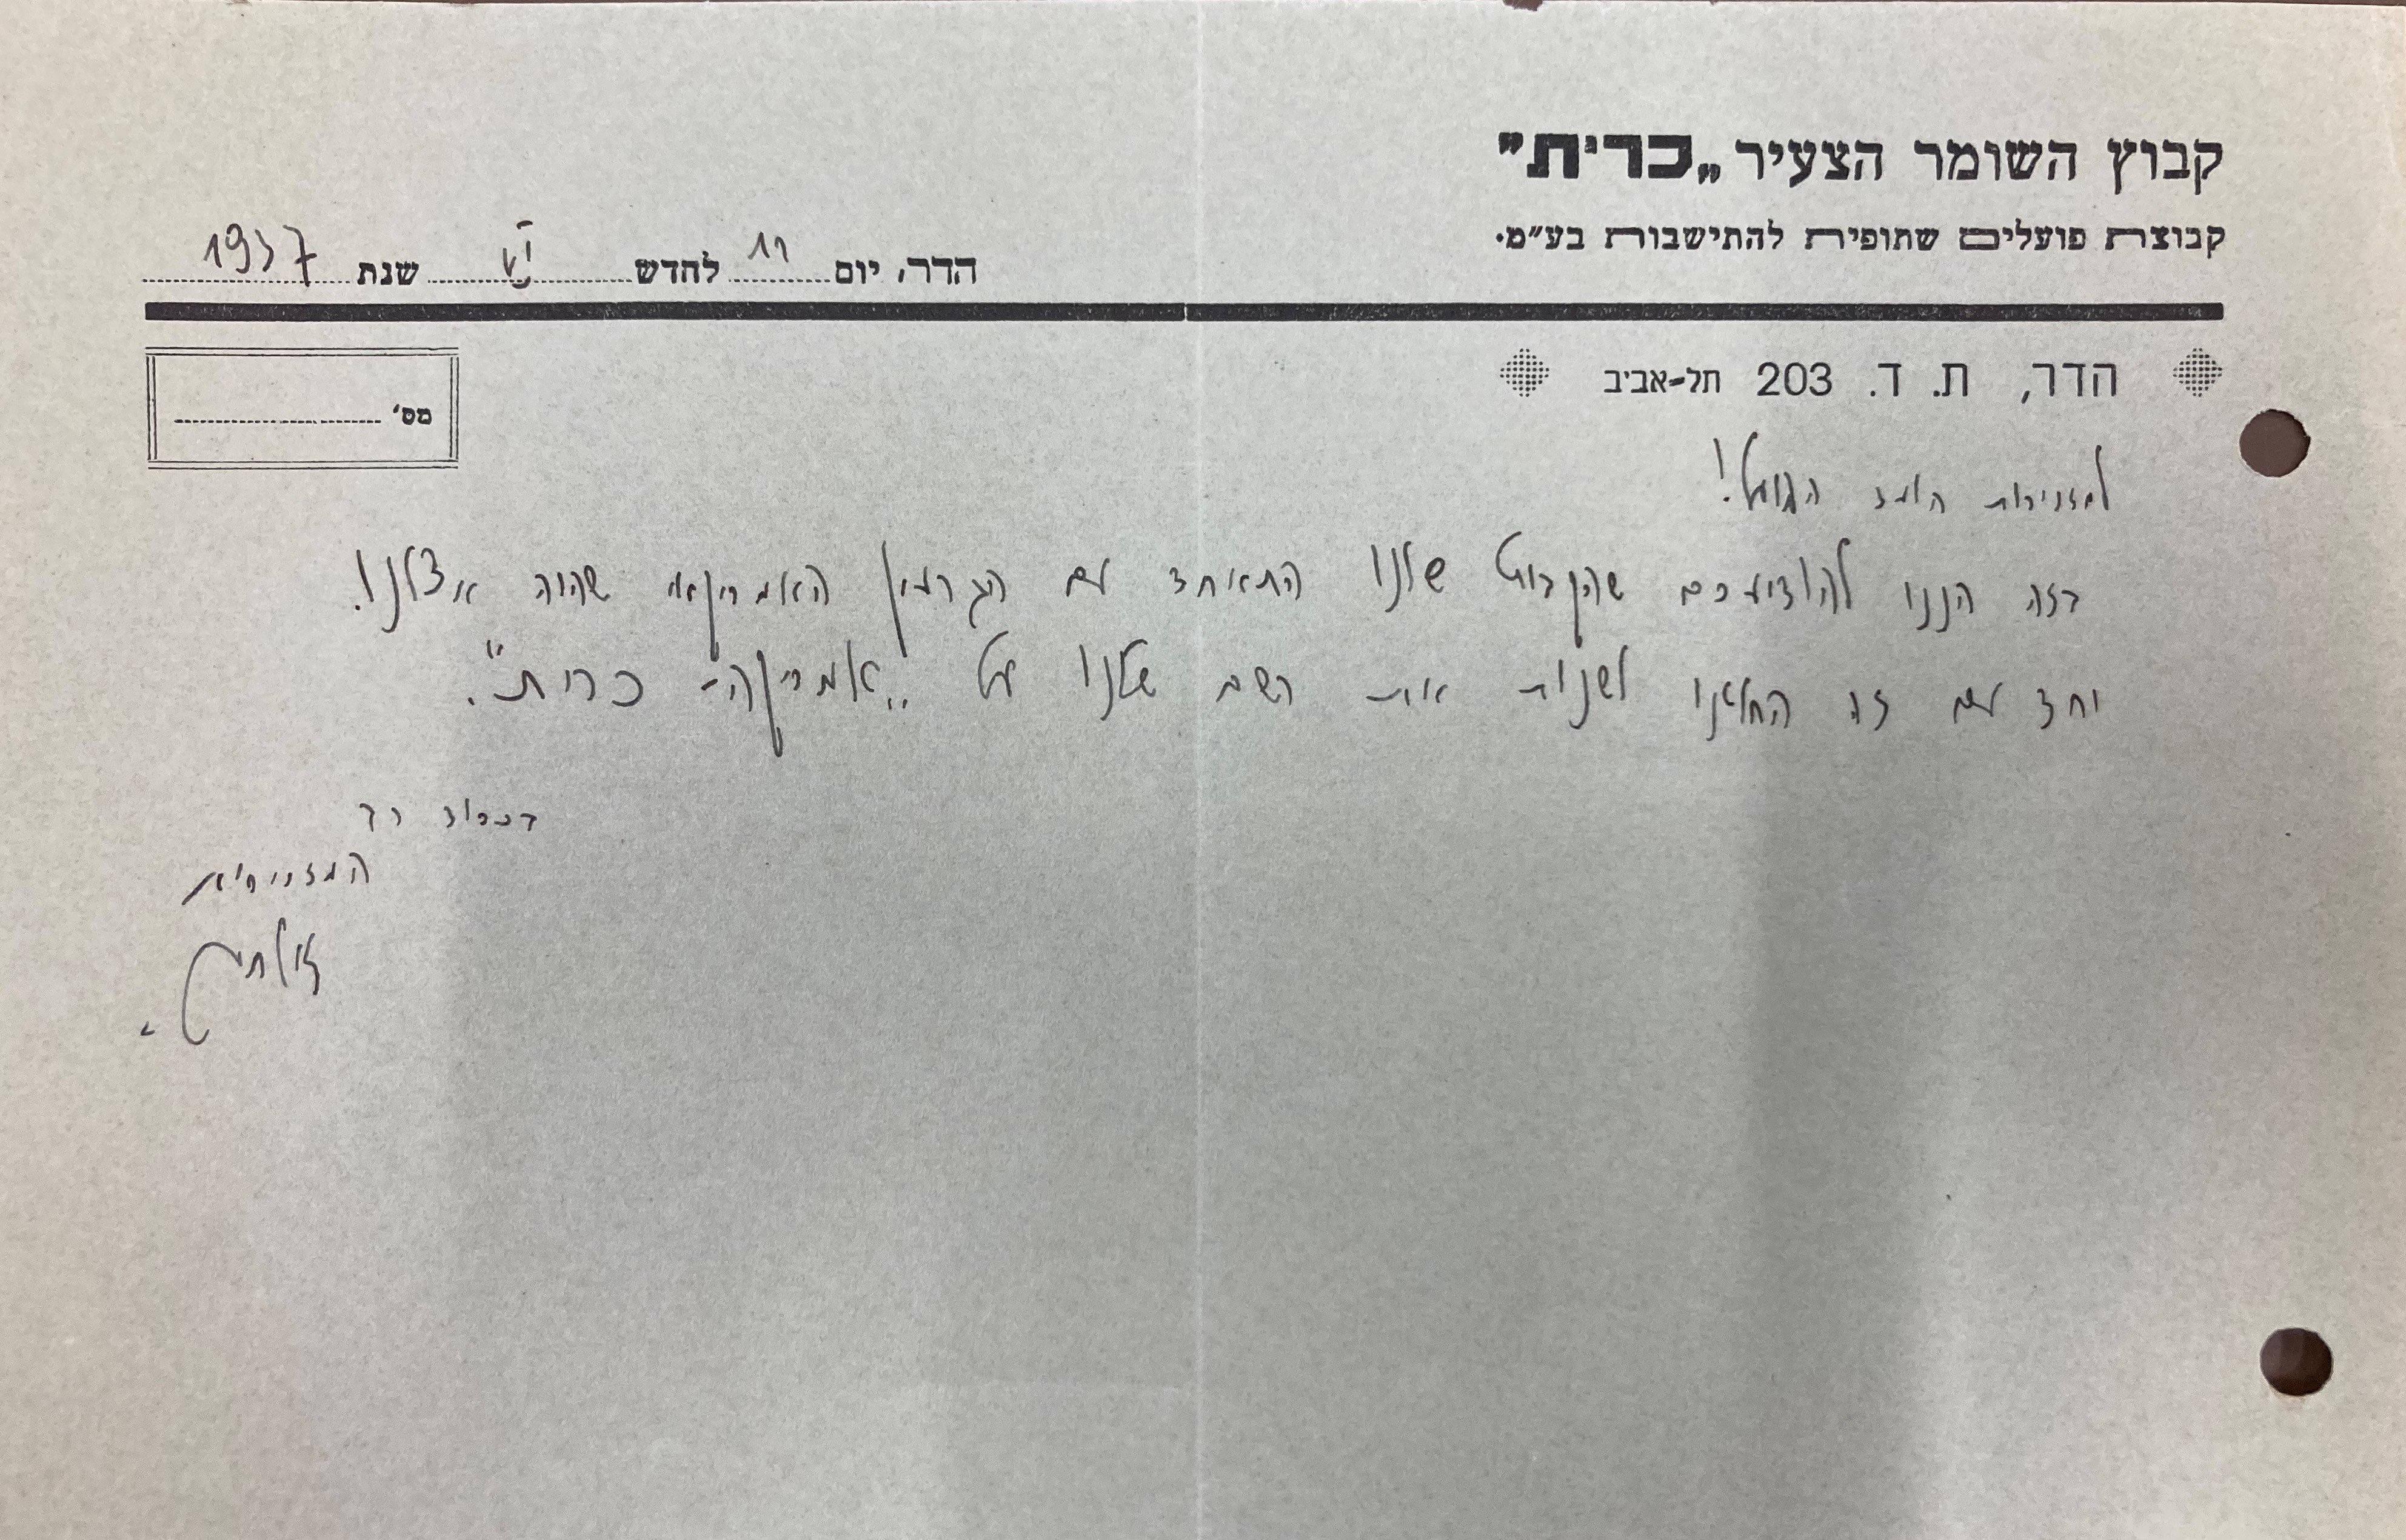 קבוץ השומר הצעיר „כרית"
קבוצת פועלים שתופית להתישבות בע"מ.
הדר, יום 11 לחדש VI שנת 1937
הדר, ת. ד. 203 תל-אביב
מס'
למזכירות הועד הפועל!
בזה הננו להודיעכם שהקבוץ שלנו התאחד עם הגרעין האמריקאי שהיה אצלנו.
יחד עם זה החלטנו לשנות את השם שלנו על „אמריקה- כרית".
בכבוד רב
המזכירות